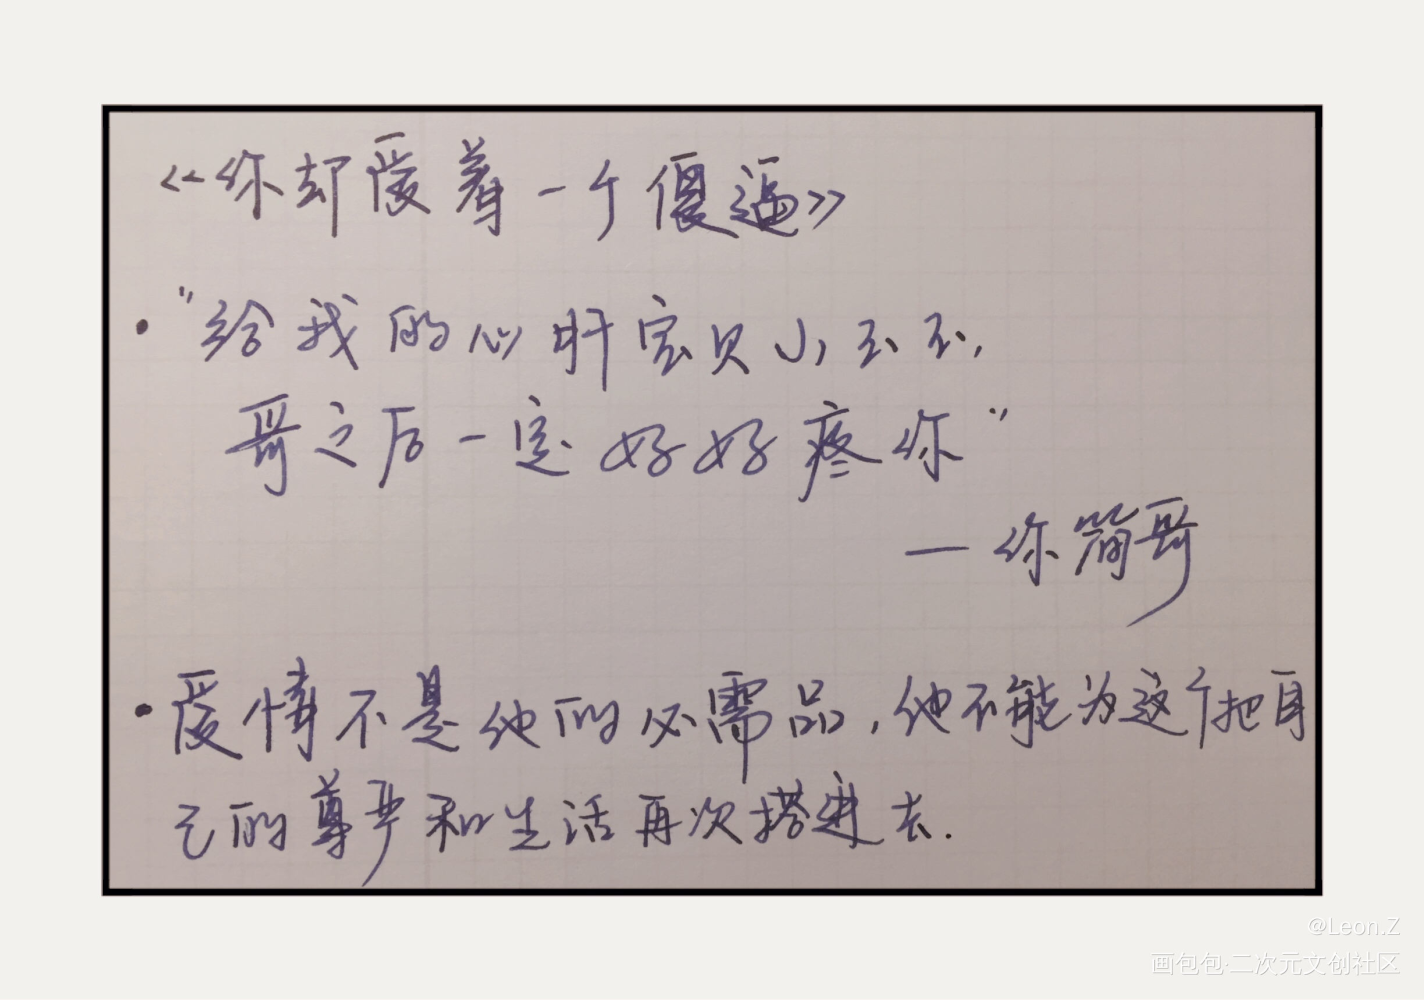 《你却爱着一个傻逼》
·"给我的心肝宝贝小玉玉,
哥之后一定好好疼你"
—你简哥
·爱情不是他的必需品,他不能为这个把自
己的尊严和生活再次搭进去.
@Leon.Z
画包包·二次元文创社区